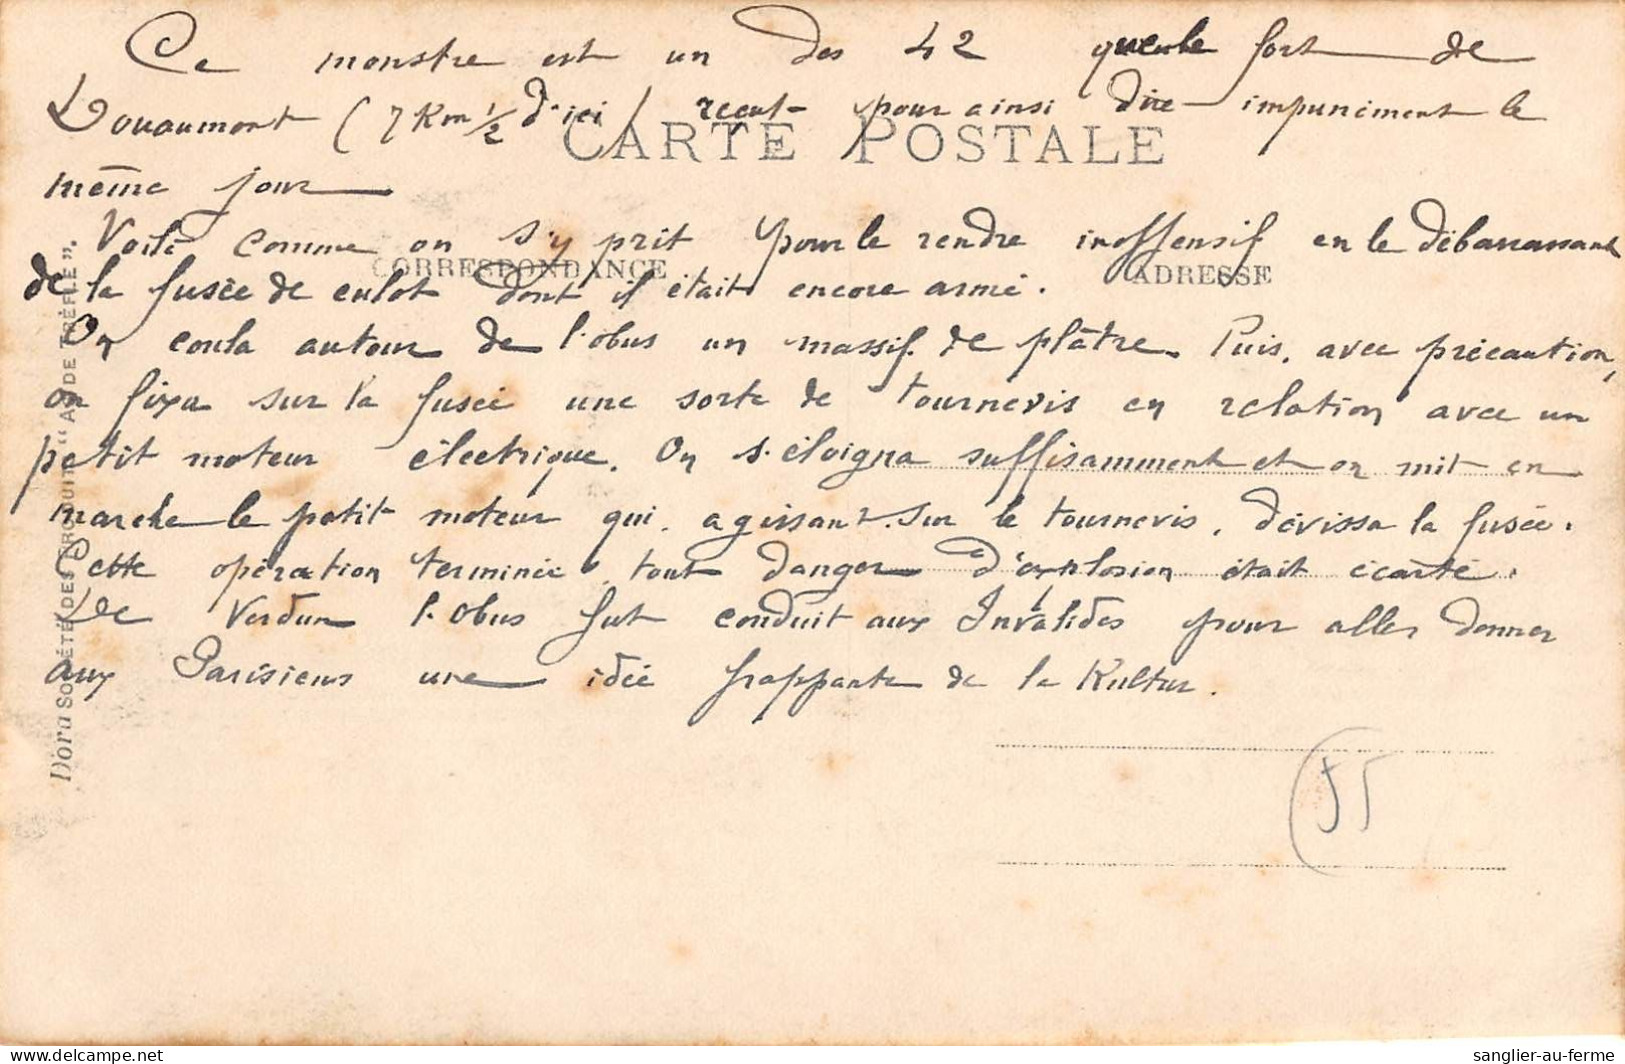 Ce monstre est un des 42 que le fort de
Douaumont (7 Km ½ d'ici) reçut pour ainsi dire impunément le
CARTE POSTALE
même jour
Voilà comme on s'y prit pour le rendre inoffensif en le débarrassant
CORRESPONDANCE
ADRESSE
de la fusée de culot dont il était encore armé.
On coula autour de l'obus un massif de plâtre. Puis, avec précaution,
on fixa sur la fusée une sorte de tournevis en relation avec un
petit moteur électrique. On s'éloigna suffisamment et on mit en
marche le petit moteur qui, agissant sur le tournevis, dévissa la fusée.
Cette opération terminée, tout danger d'explosion était écarté.
De Verdun l'Obus fut conduit aux Invalides pour aller donner
aux Parisiens une idée frappante de la Kultur.
55
D'ora SOCIÉTÉ DES PRODUITS "AS DE TRÈFLE".
sanglier-au-ferme
delcampe.net